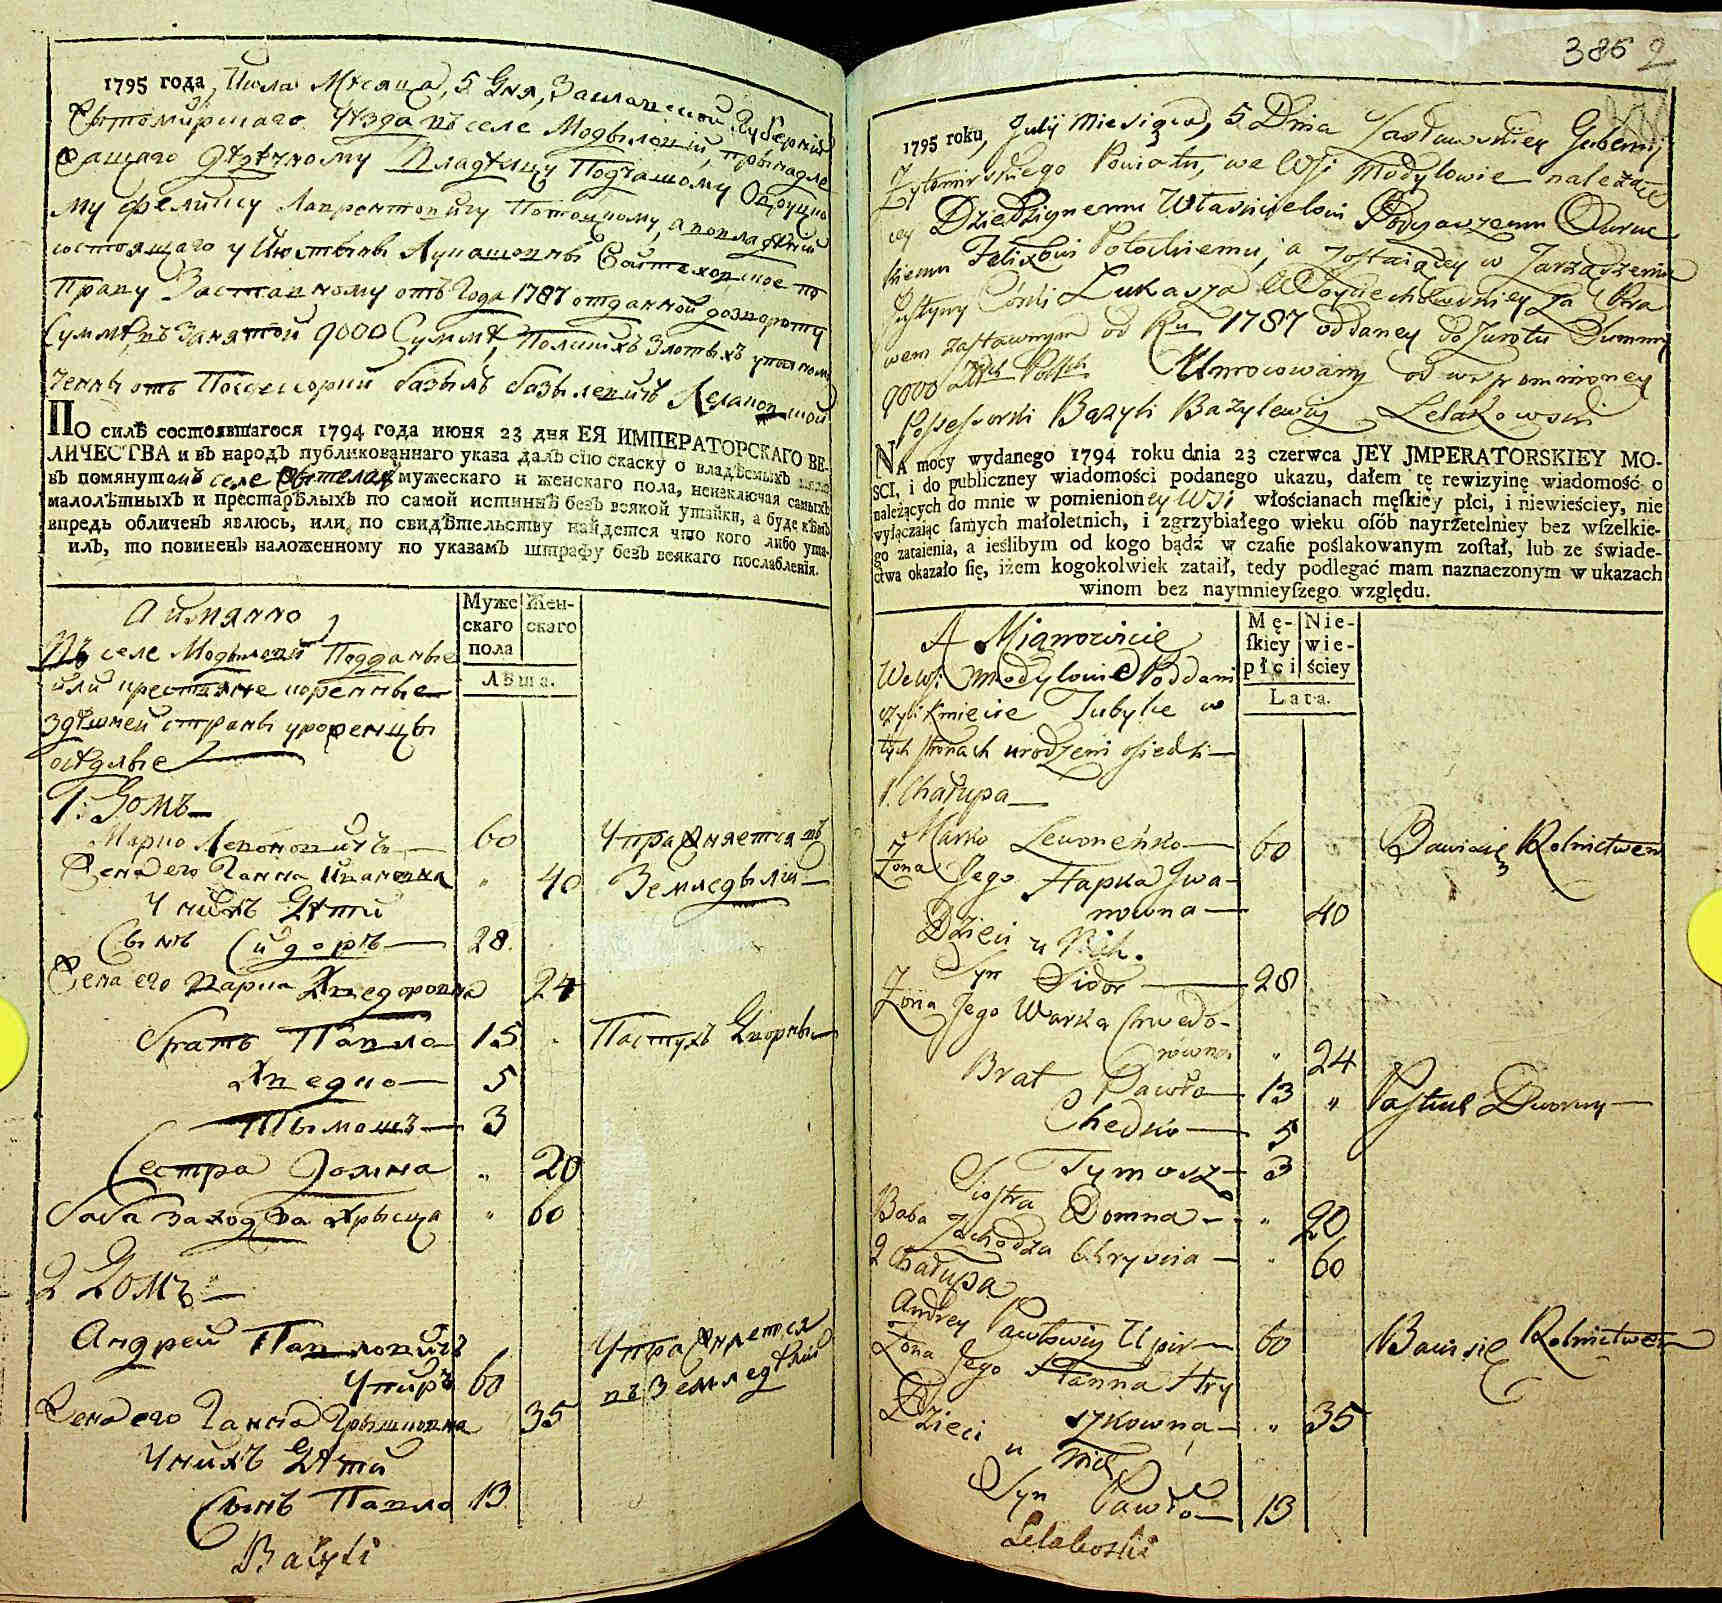 1795 года, Июла Мѣсяца, 5 Дня, Заславской Губерніи
Житомирскаго Уѣзда въ селе Модылові, принадле
жащаго Дѣдичному Владѣлцу Подчашому Овруцко
му Феликсу Потоцкому,
состоящаго у Юстыны Лукашовны
Праву Заставному отъ Года 1787 отданной дозвороту
Суммѣ, 9000 Суммѣ, Полскихъ Злотыхъ уполномо
ченны отъ Поссессорки Базыль Базылевичъ
ПО силѣ состоявшагося 1794 года июня 23 дня ЕЯ ИМПЕРАТОРСКАГО ВЕ-
ЛИЧЕСТВА и въ народъ публикованнаго указа далъ сію скаску о владѣемыхъ
въ помянутомъ селе жителяхъ мужескаго и женскаго пола, неизключая самыхъ
малолѣтныхъ и престарѣлыхъ по самой истиннѣ безъ всякой утайки, а буде кѣмъ
впредь обличенъ явлюсь, или по свидѣтельству найдется что кого либо ута-
илъ, то повиненъ наложенному по указамъ штрафу безъ всякаго послабленія.
А имянно
Муже
скаго
пола
Жен-
скаго
Лѣта.
Въ селе Модыловй Подданые
или крестяне коренные
здѣшней страны уроженцы
осѣдлые
1: Домъ
Марко Левоновичъ 60 Упражняется въ
Жена его Ганна Ивановна " 40 Земледылии
У нихъ Дѣти
Сынъ Сидоръ 28
Жена его Варка Хведоровна 24
Братъ Павло 13 Пастухъ Дворны
Хведко 5
Тымошъ 3
Сестра Домна " 20
баба заходжа Хрысца " 60
2 Домъ
Андрей Павловичъ Упражняется
Упиръ 60 въ Земледѣлии
Жена его Ганна Грышковна 35
У нихъ Дѣти
Сынъ Павло 13
Bazyli
386 2
1795 roku, Julij Miesiąca, 5 Dnia Zasławskiey Gubernij
Zytomirskiego Powiatu, we Wsi Modylowie należące
cey Dziedzicznemu Własnicielowi Podczaszemu Owruc
kiemu Felixowi Potockiemu, a zostaiącey w Zarządzeniu
Justyny Córki Łukasza Woyciechowskiey za Pra
wem zastawnym od Ru 1787 oddaney do zwrotu Summy
9000 Złłch Polsch Umocowany od wspomnioney
Possessorki Bazyli Bazylewicz Lelakowski
NA mocy wydanego 1794 roku dnia 23 czerwca JEY JMPERATORSKIEY MO-
SCI, i do publiczney wiadomości podanego ukazu, dałem tę rewizyinę wiadomość o
należących do mnie w pomienioney WSi włościanach męſkiey płci, i niewieściey, nie
wyłączaiąc ſamych małoletnich, i zgrzybiałego wieku oſób nayrzetelniey bez wſzelkie-
go zataienia, a ieślibym od kogo bądź w czaſie poślakowanym zoſtał, lub ze świade-
ctwa okazało się, iżem kogokolwiek zataił, tedy podlegać mam naznaczonym w ukazach
winom bez naymnieyſzego względu.
A Mianowicie
Mę-
ſkiey
płci
Nie-
wie-
ściey
Lata.
We wsi Modylowie Poddani
czyli kmiecie Tubylce w
tych stronach urodzeni osiedli
1. Chałupa
Marko Lewoneńko 60 Bawi się Rolnictwem
Żona Jego Hapka Jwa-
nowna 40
Dzieci u Nich.
Syn Sidor 28
Żona Jego Warka Chwedo-
rowna " 24
Brat Pawło 13 " Pastuch Dworny
Chedko 5
Tymosz 3
Siostra Domna " 20
Baba Zachodza Chryscia " 60
2 Chałupa
Andrey Pawłowicz Upir 60 Bawi się Rolnictwem
Żona Jego Hanna Hry
szkowna " 35
Dzieci u Nich
Syn Pawło 13
Lelakoski